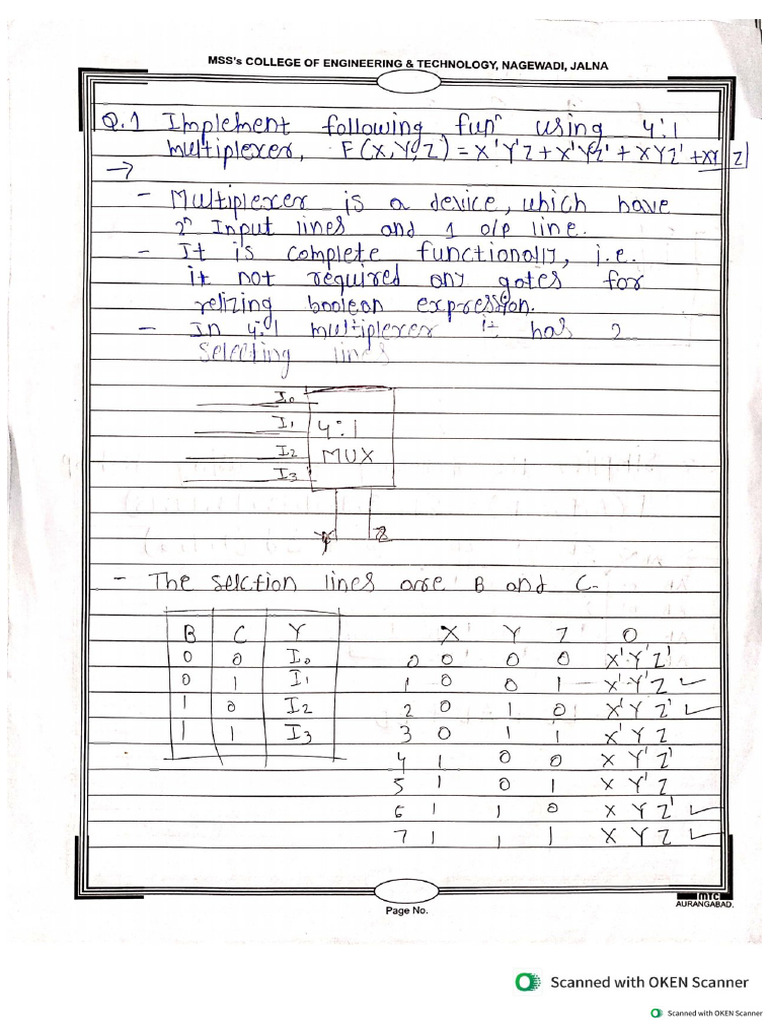 MSS's COLLEGE OF ENGINEERING & TECHNOLOGY, NAGEWADI, JALNA
Q.1 Implement following funⁿ using 4:1
multiplexer, F(X,Y,Z) = X'Y'Z + X'YZ' + XYZ' + XYZ
→
- Multiplexer is a device, which have
2ⁿ Input lines and 1 o/p line.
- It is complete functionally, i.e.
it not required any gates for
relizing boolean expression.
- In 4:1 multiplexer it has 2
Selecting lines
I₀
I₁ 4:1
I₂ MUX
I₃
Y Z
- The selction lines are B and C.
B C Y X Y Z O
0 0 I₀ 0 0 0 0 X'Y'Z'
0 1 I₁ 1 0 0 1 X'Y'Z ✓
1 0 I₂ 2 0 1 0 X'YZ' ✓
1 1 I₃ 3 0 1 1 X'YZ
4 1 0 0 X Y'Z'
5 1 0 1 X Y'Z
6 1 1 0 X Y Z' ✓
7 1 1 1 X Y Z ✓
Page No.
MTC
AURANGABAD.
Scanned with OKEN Scanner
Scanned with OKEN Scanner